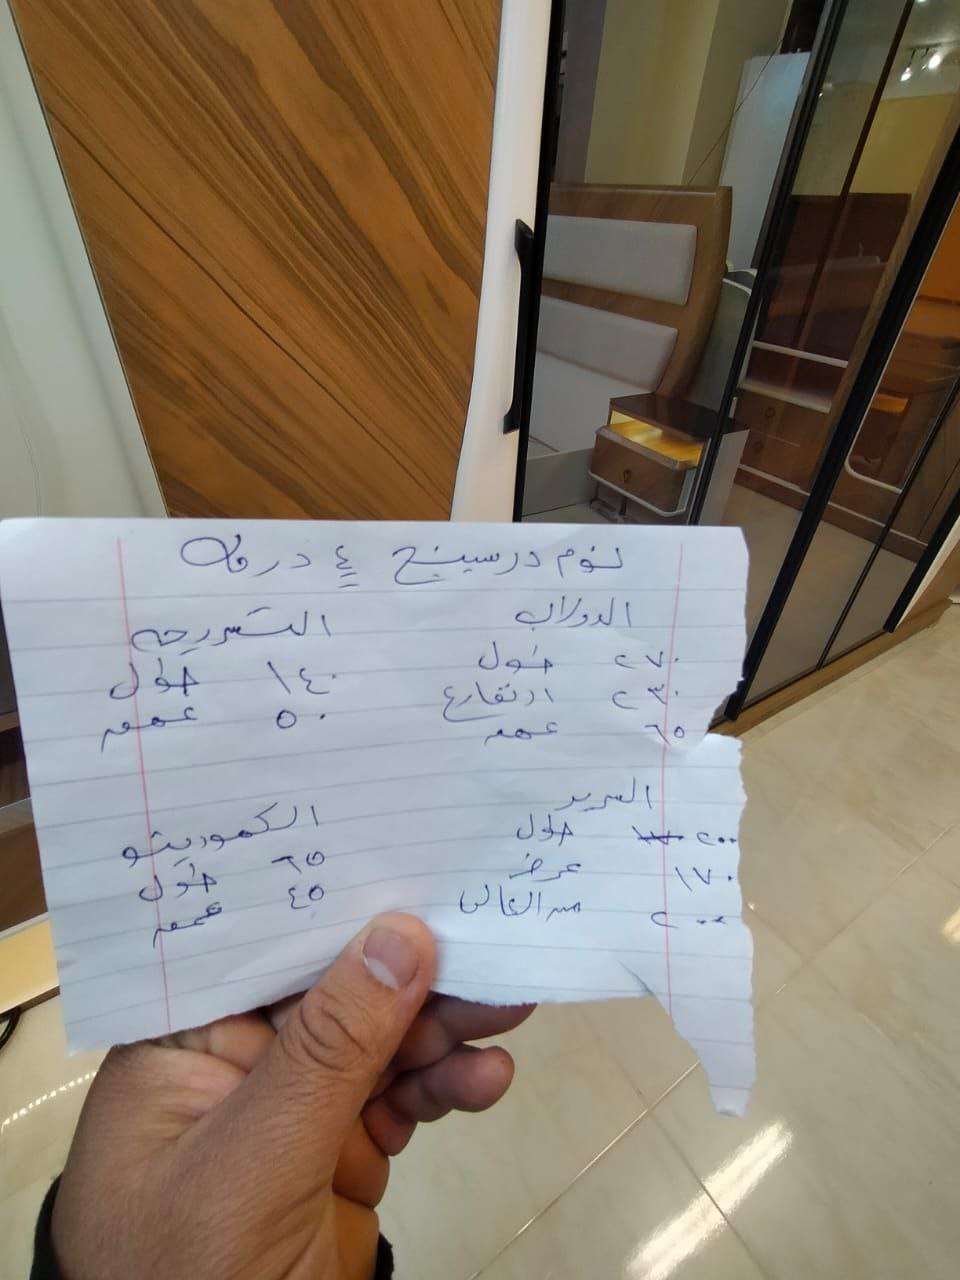 نوم درسينج ٤ درفه
الدولاب
٢٧٠ طول
٢٣٠ ارتفاع
٦٥ عمق
التسريحه
١٤٠ طول
٥٠ عمق
السرير
٢٠٠ طول
١٧٠ عرض
٢٠٠ من
الكمودينو
٦٥ طول
٤٥ عمق